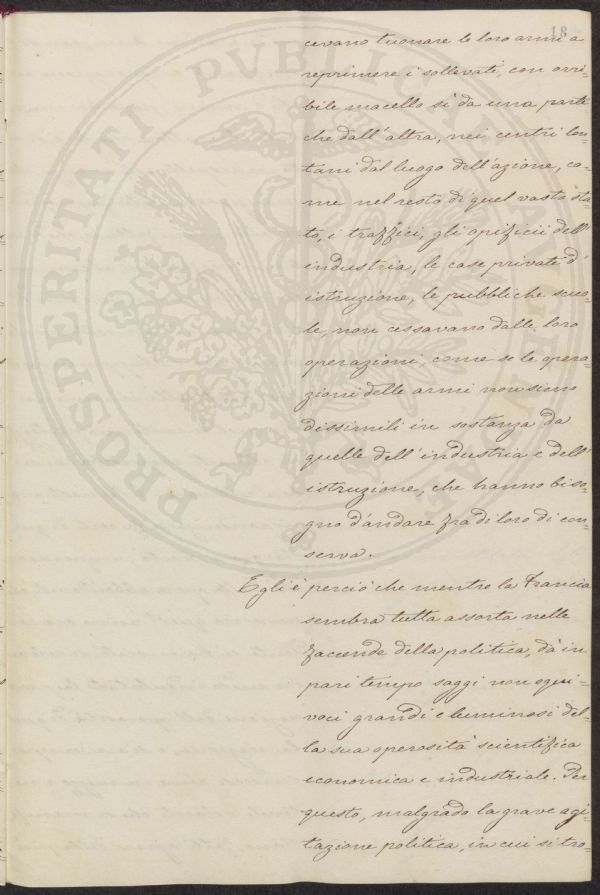 18
cevano tuonare le loro armi a
reprimere i sollevati, con orri-
bile macello sì da una parte
che dall'altra, nei centri lon-
tani dal luogo dell'azione, co-
me nel resto di quel vasto sta-
to, i traffici, gli opificii dell'
industria, le case private d'
istruzione, le pubbliche scuo-
le, non cessavano dalle loro
operazioni, come se le opera-
zioni delle armi non sieno
dissimili in sostanza da
quelle dell'industria e dell'
istruzione, che hanno biso-
gno d'andare fra di loro di con-
serva.
Egli è perciò che mentre la Francia
sembra tutta assorta nelle
faccende della politica, dà in
pari tempo saggi non equi-
voci grandi e luminosi del-
la sua operosità scientifica
economica e industriale. Per
questo, malgrado la grave agi-
tazione politica, in cui si tro-
PROSPERITATI PUBLICAE